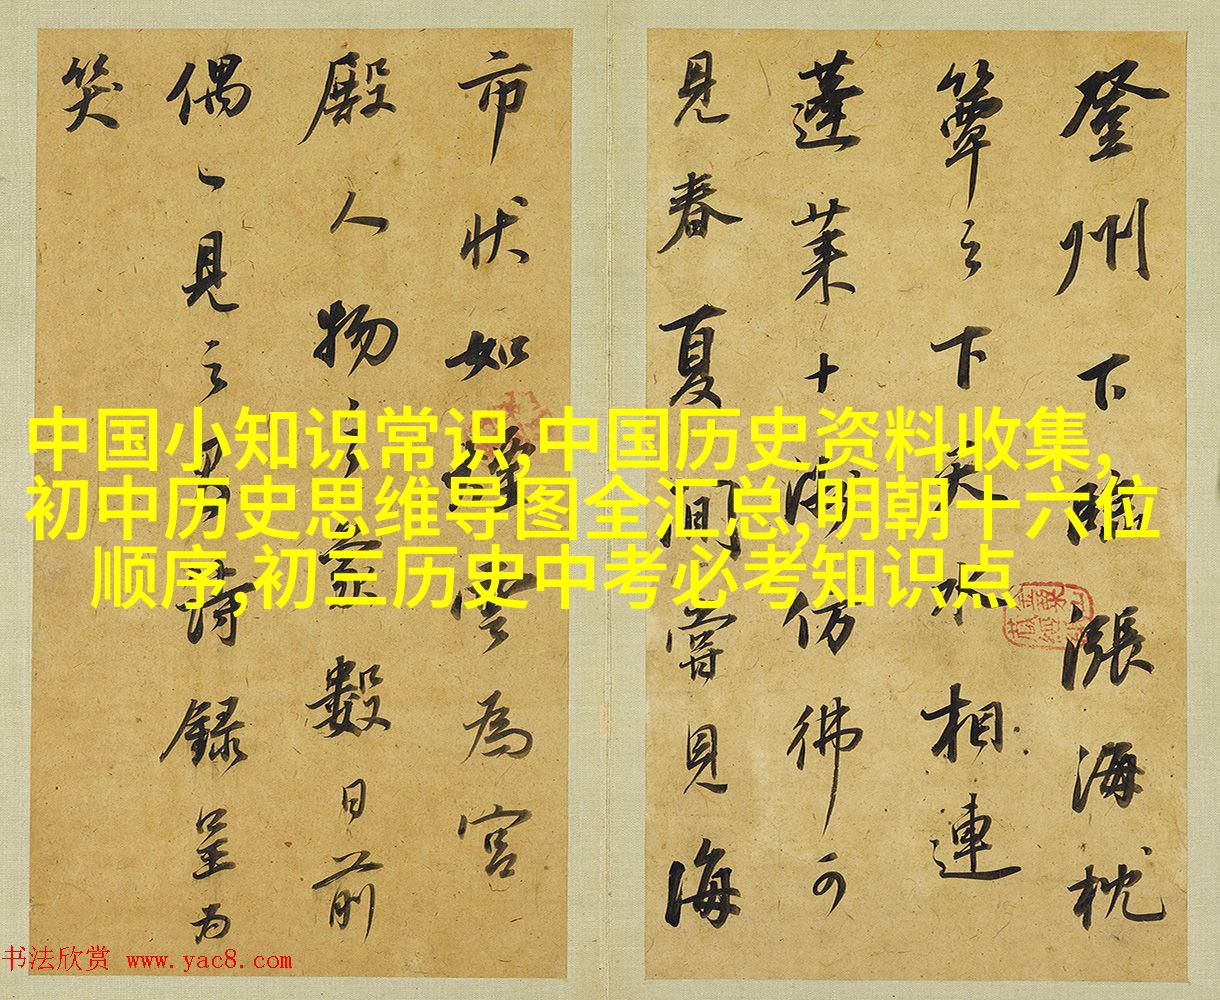 登州下臨漲海枕
簟之下天水相連
蓬萊十仿彿可
見春夏間嘗見海
市狀如雲為宮
殿人物之數日前
偶見之詩錄呈為
笑
中国小知识常识,中国历史资料收集,
初中历史思维导图全汇总,明朝十六位
顺序,初三历史中考必考知识点
书法欣赏 www.yac8.com